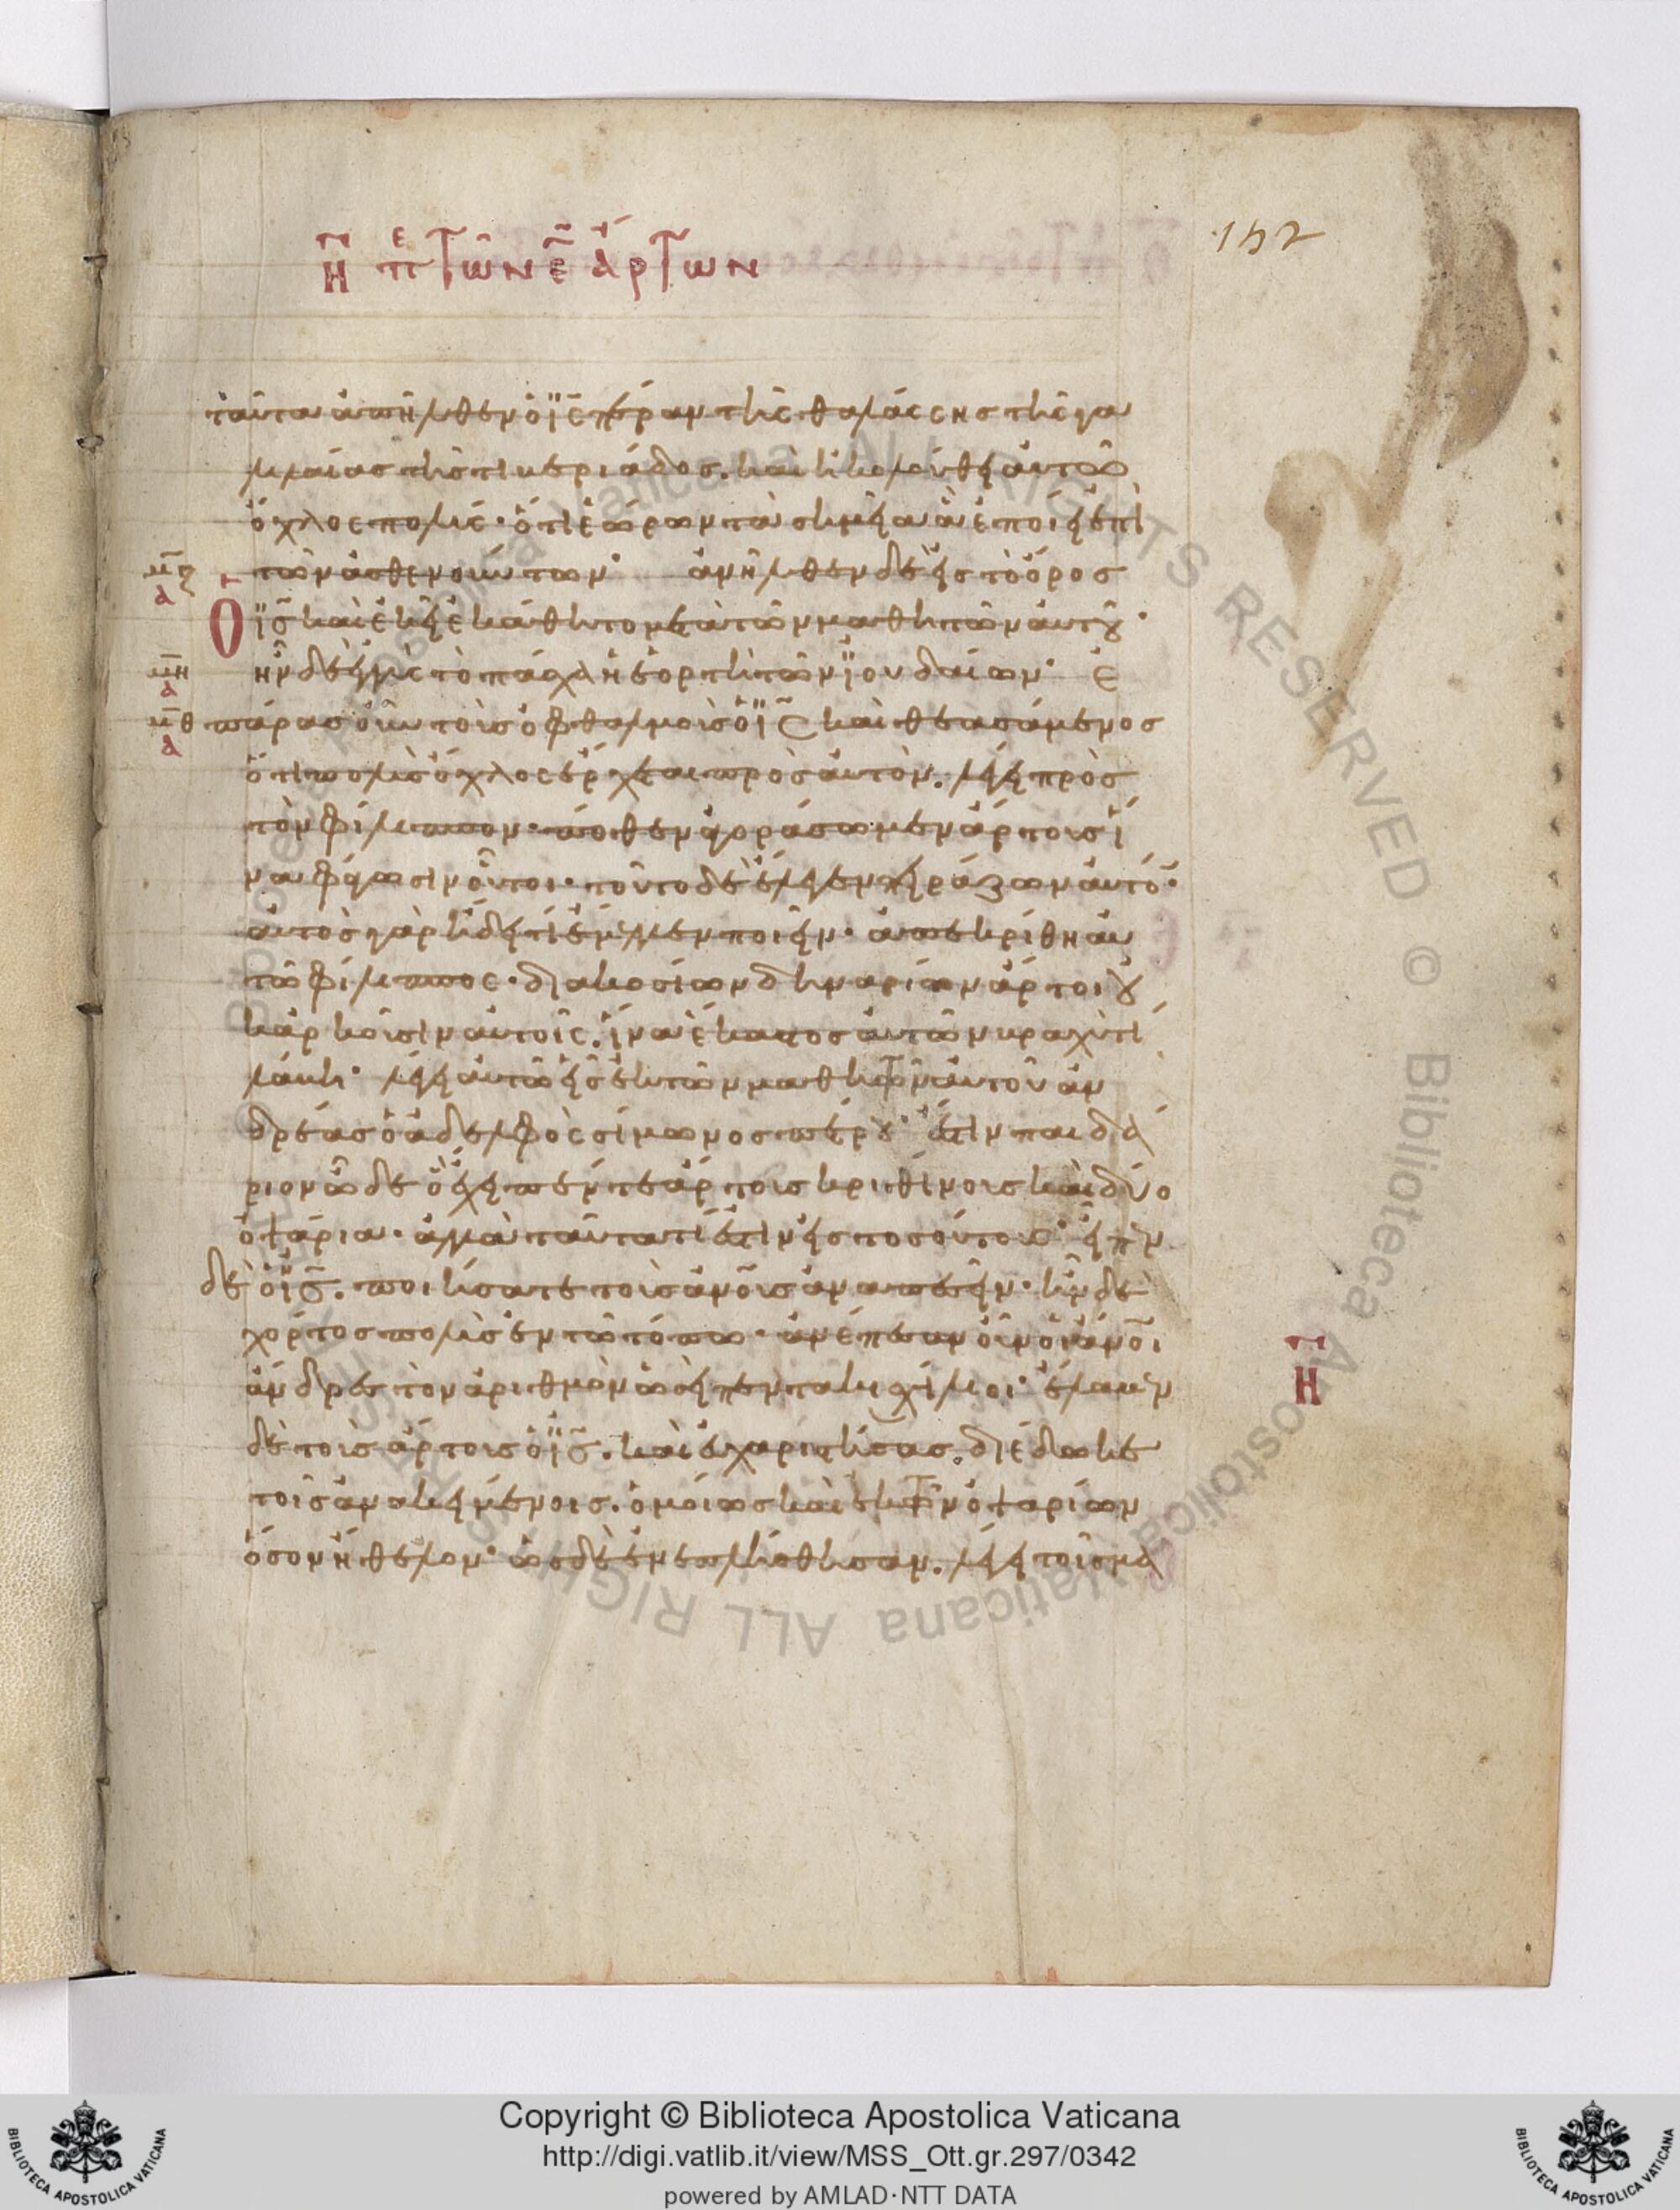 η πε τῶν ε̄ ἄρτων
152
ταῦτα ἀπῆλθεν ὁ ις πέραν τῆς θαλάσσης τῆς γα
λιλαίας τῆς τιβεριάδος. καὶ ἠκολούθει αὐτῶ
ὄχλος πολύς· ὅτι ἑώρων τὰ σημεῖα ἃ ἐποίει ἐπὶ
τῶν ἀσθενούντων· ἀνῆλθεν δὲ εἰς τὸ ὄρος
μζ α
Ο ις καὶ ἐκεῖ ἐκάθητο μετὰ τῶν μαθητῶν αὐτοῦ·
μη α
ἦν δὲ ἐγγὺς τὸ πάσχα ἡ ἑορτὴ τῶν ϊουδαίων· ἐ
μθ α
πάρας οὖν τοὺς ὀφθαλμοὺς ὁ ις καὶ θεασάμενος
ὅτι πολὺς ὄχλος ἔρχεται πρὸς αὐτὸν. λέγει πρὸς
τὸν φίλιππον· πόθεν ἀγοράσωμεν ἄρτους ἵ
να φάγωσιν οὗτοι· τοῦτο δὲ ἔλεγεν πειράζων αὐτό·
αὐτὸς γὰρ ἤδει τί ἔμελλεν ποιεῖν· ἀπεκρίθη αὐ
τῶ φίλιππος· διακοσίων δηναρίων ἄρτοι οὐ
κ ἀρκοῦσιν αὐτοῖς. ἵνα ἕκαστος αὐτῶν βραχύ τι
λάβη· λέγει αὐτῶ εἷς ἐκ τῶν μαθητῶν αὐτοῦ ἀν
δρέας ὁ ἀδελφὸς σίμωνος πέτρου· ἔστιν παιδά
ριον ὧδε ὃ ἔχει πέντε ἄρτους κριθίνους καὶ δύο
ὀψάρια· ἀλλὰ ταῦτα τί ἐστιν εἰς τοσούτους· εἶπεν
δὲ ὁ ις. ποιήσατε τοὺς ἀνους ἀναπεσεῖν· ἦν δὲ
χόρτος πολὺς ἐν τῶ τόπω· ἀνέπεσαν οὖν οἱ ἀνοι
ἄνδρες τὸν ἀριθμὸν ὡσεὶ πεντακισχίλιοι· ἔλαβεν
η
δὲ τοὺς ἄρτους ὁ ις. καὶ εὐχαριστήσας. διέδωκε
τοῖς ἀνακειμένοις. ὁμοίως καὶ ἐκ τῶν ὀψαρίων
ὅσον ἤθελον· ὡς δὲ ἐνεπλήσθησαν. λέγει τοῖς μα
Copyright © Biblioteca Apostolica Vaticana
http://digi.vatlib.it/view/MSS_Ott.gr.297/0342
powered by AMLAD·NTT DATA